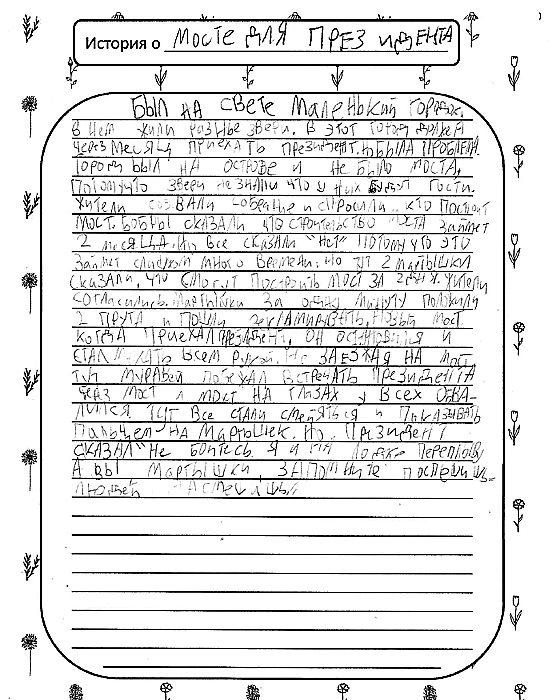 История о Мосте для президента
Был на свете маленький городок.
В нем жили разные звери. В этот город должен
через месяц приехать президент. Но была проблема.
Город был на острове и не было моста,
потому что звери не знали что у них будут гости.
Жители созвали собрание и спросили: кто построит
мост. Бобры сказали что строительство моста займет
2 месяца. Но все сказали "нет" потому что это
займет слишком много времени. Но тут 2 мартышки
сказали, что смогут построить мост за 2 дня. Жители
согласились. Мартышки за одну минуту положили
2 прута и пошли рекламировать новый мост.
Когда приехал президент, он остановился и
стал махать всем рукой. Не заезжая на мост
тут муравей поехал встречать президента
через мост и мост на глазах у всех обва-
лился. Тут все стали смеяться и показывать
пальцем на мартышек. Но президент
сказал не бойтесь. Я и на лодке переплыву
А вы мартышки, запомните поспешишь-
людей насмешишь